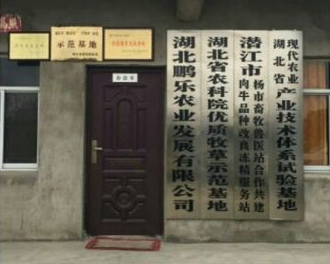 示范基地
办公室
湖北鹏乐农业发展有限公司
湖北省农科院优质牧草示范基地
潜江市
杨市畜牧兽医站合作共建
肉牛品种改良冻精服务站
现代农业
湖北省
产业技术体系试验基地